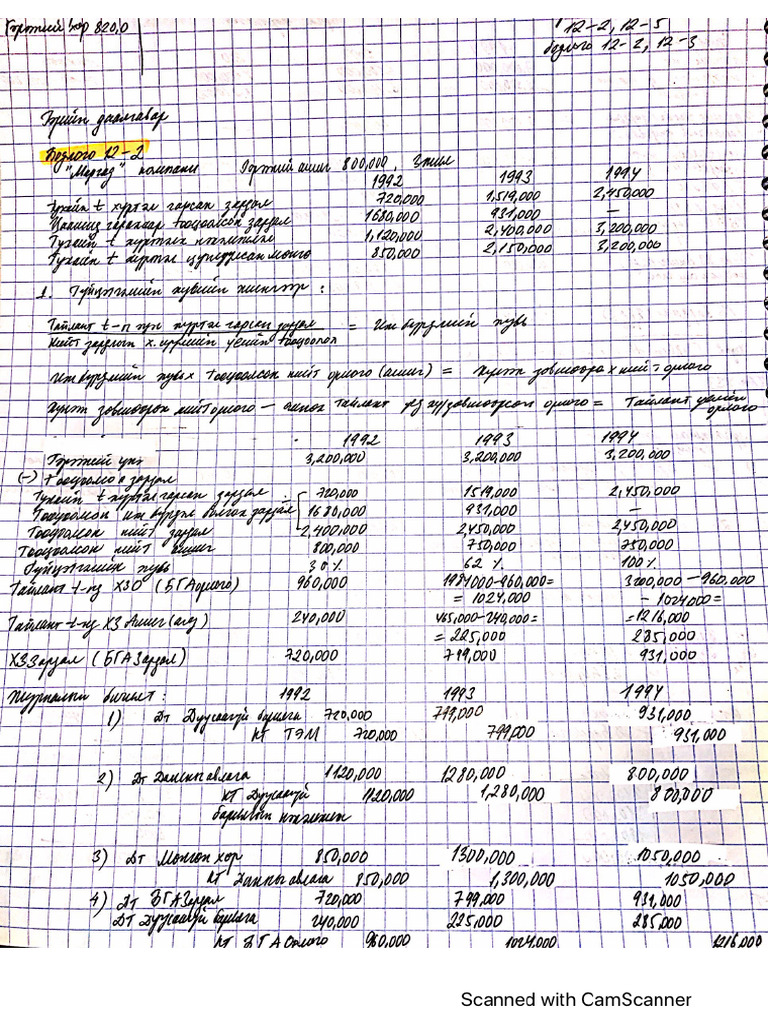 Гэрээний хөр 820,0
12-2, 12-5
бодлого 12-2, 12-3
Гэрийн даалгавар
Бодлого 12-2
"Маргад" компани Гэрээний ашиг 800,000, 3 жил
1992 1993 1994
Тухайн t хүртэл гарсан зардал 720,000 1,519,000 2,450,000
Цаашид гарахаар тооцоолсон зардал 1680,000 931,000 —
Тухайн t хуртэлх нэхэмжлэл 1,120,000 2,400,000 3,200,000
Тухайн t хүртэл цуглуулсан мөнгө 850,000 2,150,000 3,200,000
1. Гүйцэтгэлийн хувийн хэмжээ :
Тайлант t-н хүртэл гарсан зардал = Иж бүрдлийн хувь
Нийт зардлын үеийн тооцоолол
Иж бүрдлийн хувь x тооцоолсон нийт орлого (ашиг) = Хүлээн зөвшөөрөх нийт орлого
Хүлээн зөвшөөрөх нийт орлого — өмнөх тайлант орлого = Тайлант үеийн орлого
1992 1993 1994
Гэрээний үнэ 3,200,000 3,200,000 3,200,000
(-) тооцоолсон зардал
Тухайн t хүртэл гарсан зардал : 720,000 1519,000 2,450,000
Тооцоолсон иж бүрдэл болгох зардал 1680,000 931,000 —
Тооцоолсон нийт зардал 2,400,000 2,450,000 2,450,000
Тооцоолсон нийт ашиг 800,000 750,000 750,000
Гүйцэтгэлийн хувь 30% 62% 100%
Тайлант t-нд ХЗО (БГА орлого) 960,000 1984000-960,000= 3200,000-960.000
= 1024,000 - 1024000=
Тайлант t-нд ХЗ Ашиг (алд) 240,000 465,000-240,000= =1216,000
= 225,000 285,000
ХЗ Зардал (БГА Зардал) 720,000 799,000 931,000
Журналын бичилт : 1992 1993 1994
1) Дт Дуусаагүй барилга 720,000 799,000 931,000
Кт ТЭМ 720,000 799,000 931,000
2) Дт Дансны авлага 1120,000 1280,000 800,000
Кт Дуусаагүй 1120,000 1,280,000 800,000
барилгын нэхэмжлэл
3) Дт Мөнгөн хөр 850,000 1300,000 1050,000
Кт Дансны авлага 850,000 1,300,000 1050,000
4) Дт БГА Зардал 720,000 799,000 931,000
Дт Дуусаагүй барилга 240,000 225,000 285,000
Кт БГА Орлого 960,000 1024,000 1216,000
Scanned with CamScanner